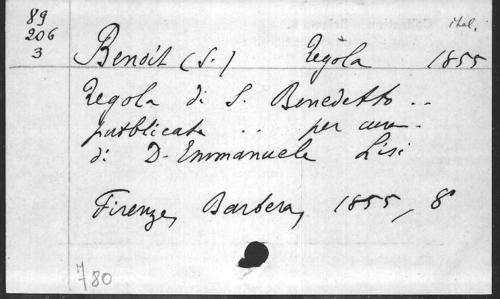 89
206
3
ital.
Benoît (S.) Regola 1855
Regola di S. Benedetto ..
pubblicata .. per cura
di D. Emmanuele Lisi
Firenze, Barbera, 1855, 8°
780